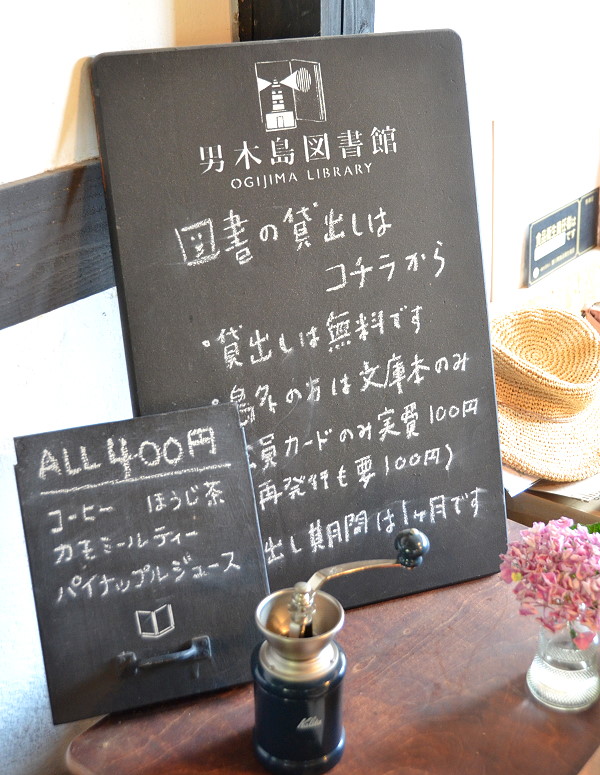 男木島図書館
OGIJIMA LIBRARY
図書の貸出しは
コチラから
・貸出しは無料です
島外の方は文庫本のみ
員カードのみ実費100円
再発行も要100円)
出し期間は1ヶ月です
ALL 400円
コーヒー ほうじ茶
カモミールティー
パイナップルジュース
Kalita